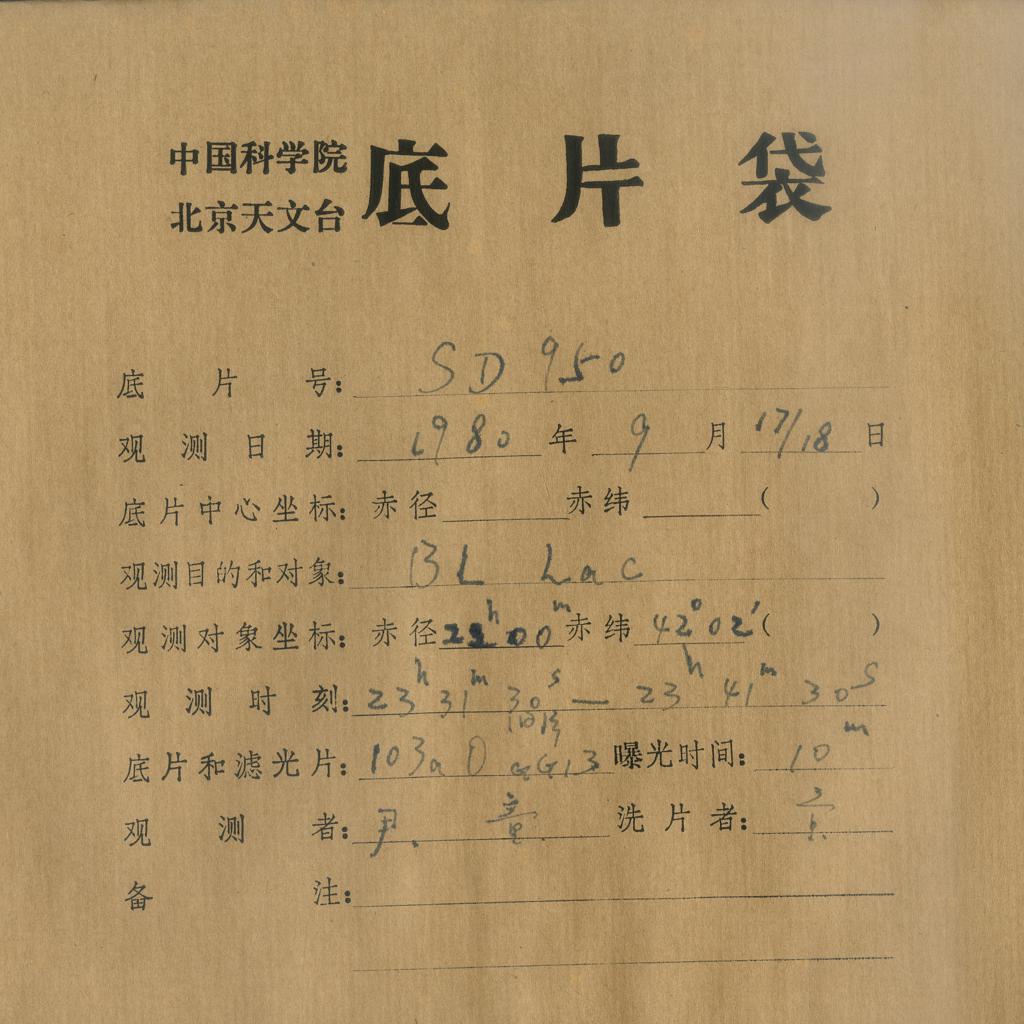 中国科学院
北京天文台
底片袋
底片号: SD 950
观测日期: 1980 年 9 月 17/18 日
底片中心坐标: 赤径 赤纬 ( )
观测目的和对象: BL Lac
观测对象坐标: 赤径 22h 00m 赤纬 42° 02′ ( )
观测时刻: 23h 31m 30s — 23h 41m 30s
底片和滤光片: 103a D GG13 曝光时间: 10m
观测者: 尹. 童. 洗片者:
备注: